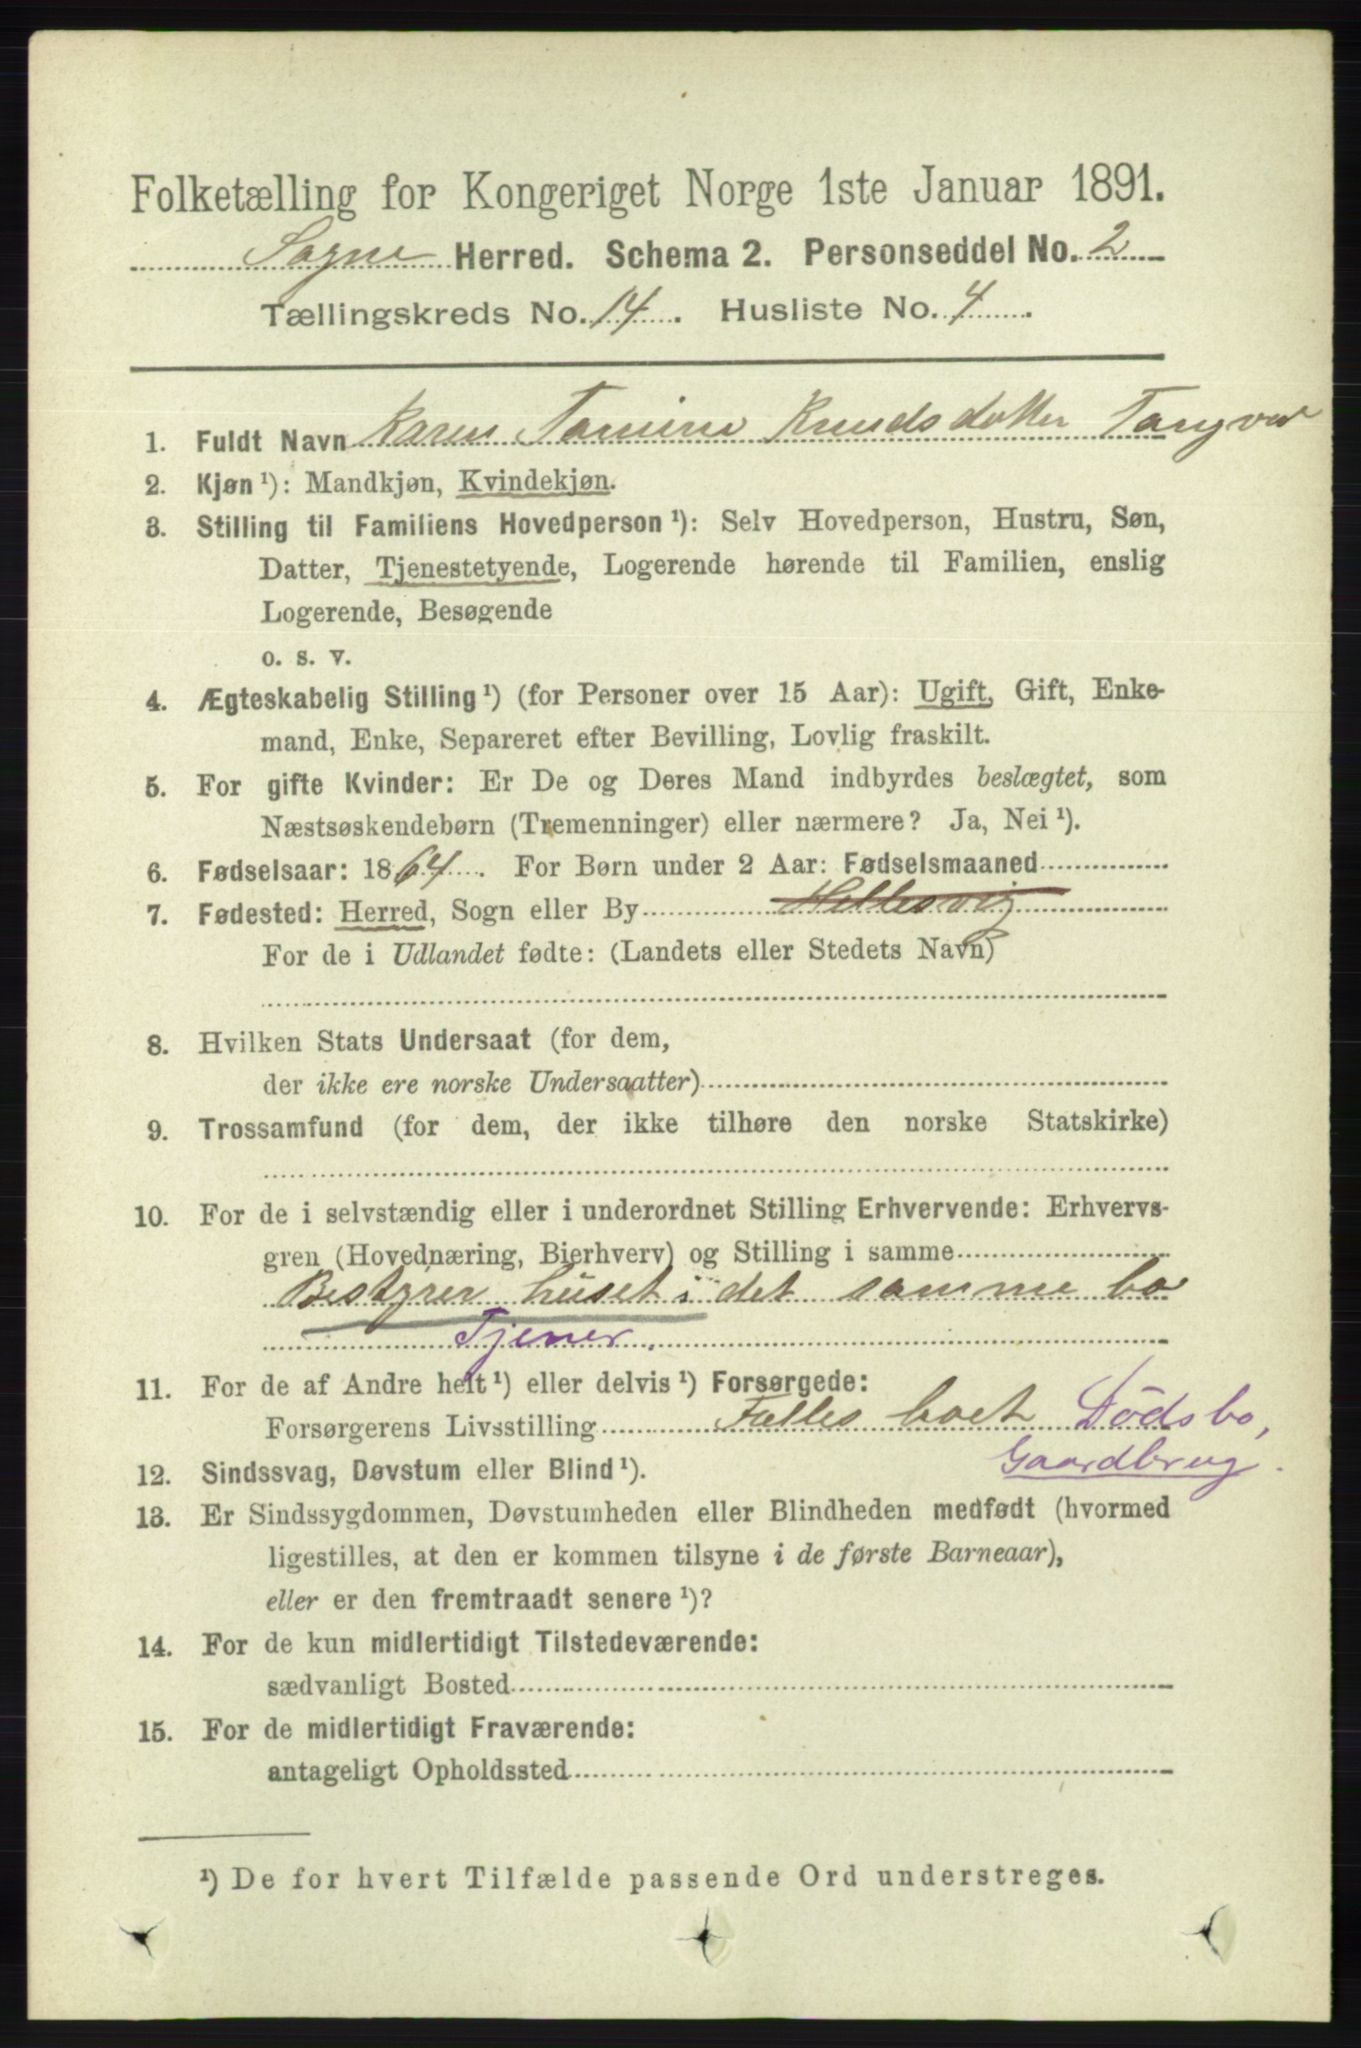 Folketælling for Kongeriget Norge 1ste Januar 1891.
Søgne Herred. Schema 2. Personseddel No. 2
Tællingskreds No. 14. Husliste No. 4.
1. Fuldt Navn Karen Tomine Knudsdotter Tangvar
2. Kjøn ¹): Mandkjøn, Kvindekjøn.
3. Stilling til Familiens Hovedperson ¹): Selv Hovedperson, Hustru, Søn,
Datter, Tjenestetyende, Logerende hørende til Familien, enslig
Logerende, Besøgende
o. s. v.
4. Ægteskabelig Stilling ¹) (for Personer over 15 Aar): Ugift, Gift, Enke-
mand, Enke, Separeret efter Bevilling, Lovlig fraskilt.
5. For gifte Kvinder: Er De og Deres Mand indbyrdes beslægtet, som
Næstsøskendebørn (Tremenninger) eller nærmere? Ja, Nei ¹).
6. Fødselsaar: 1864. For Børn under 2 Aar: Fødselsmaaned
7. Fødested: Herred, Sogn eller By Hellesvig
For de i Udlandet fødte: (Landets eller Stedets Navn)
8. Hvilken Stats Undersaat (for dem,
der ikke ere norske Undersaatter)
9. Trossamfund (for dem, der ikke tilhøre den norske Statskirke)
10. For de i selvstændig eller i underordnet Stilling Erhvervende: Erhvervs-
gren (Hovednæring, Bierhverv) og Stilling i samme
Bestyrer huset i det samme bo
Tjener.
11. For de af Andre helt ¹) eller delvis ¹) Forsørgede:
Forsørgerens Livsstilling Fælles boet Dödsbo,
Gaardbrug.
12. Sindssvag, Døvstum eller Blind ¹).
13. Er Sindssygdommen, Døvstumheden eller Blindheden medfødt (hvormed
ligestilles, at den er kommen tilsyne i de første Barneaar),
eller er den fremtraadt senere ¹)?
14. For de kun midlertidigt Tilstedeværende:
sædvanligt Bosted
15. For de midlertidigt Fraværende:
antageligt Opholdssted
¹) De for hvert Tilfælde passende Ord understreges.